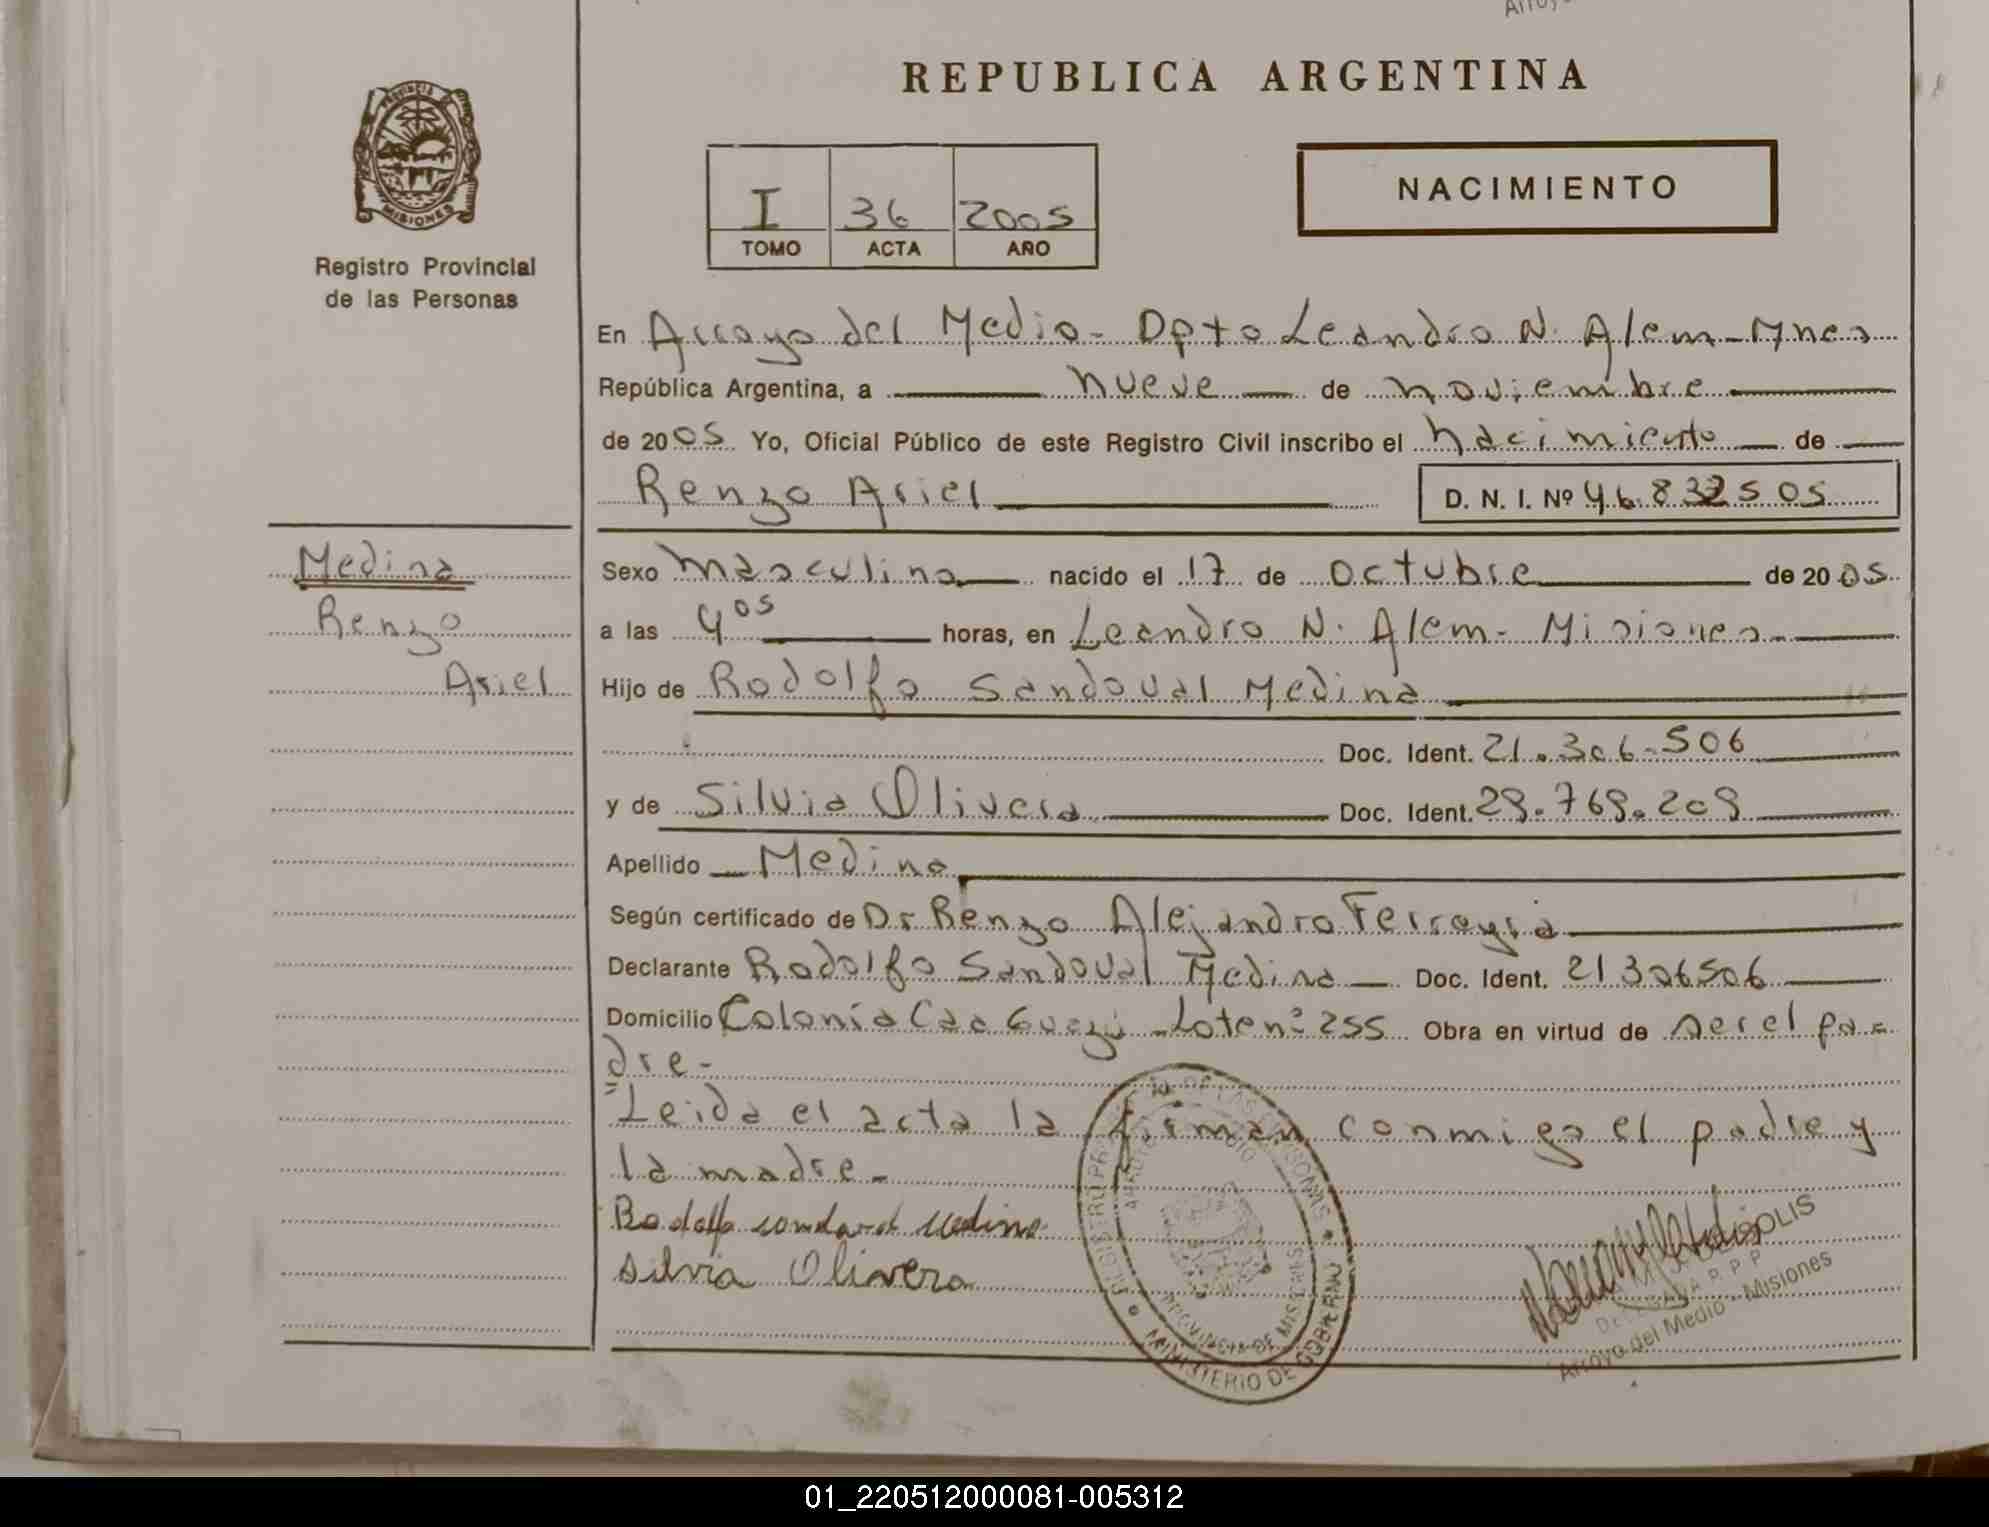 REPUBLICA ARGENTINA
PROVINCIA DE
MISIONES
Registro Provincial
de las Personas
I 36 2005
TOMO ACTA AÑO
NACIMIENTO
En Arroyo del Medio - Dpto Leandro N. Alem - Mnes
República Argentina, a nueve de noviembre
de 2005 Yo, Oficial Público de este Registro Civil inscribo el nacimiento de
Renzo Ariel D. N. I. Nº 46.832505
Medina
Renzo
Ariel
Sexo masculino nacido el 17 de octubre de 2005
a las 4 05 horas, en Leandro N. Alem - Misiones
Hijo de Rodolfo Sandoval Medina
Doc. Ident. 21.306.506
y de Silvia Olivera Doc. Ident. 29.769.209
Apellido Medina
Según certificado de Dr Renzo Alejandro Ferreyra
Declarante Rodolfo Sandoval Medina Doc. Ident. 21306506
Domicilio Colonia Caa Guazú - Lote nº 255 Obra en virtud de ser el pa-
dre -
Leida el acta la firman conmigo el padre y
la madre -
Rodolfo Sandoval Medina
Silvia Olivera
PROVINCIA DE MISIONES
MINISTERIO DE GOBIERNO
DELEGADA R. P. P.
Arroyo del Medio - Misiones
01_220512000081-005312